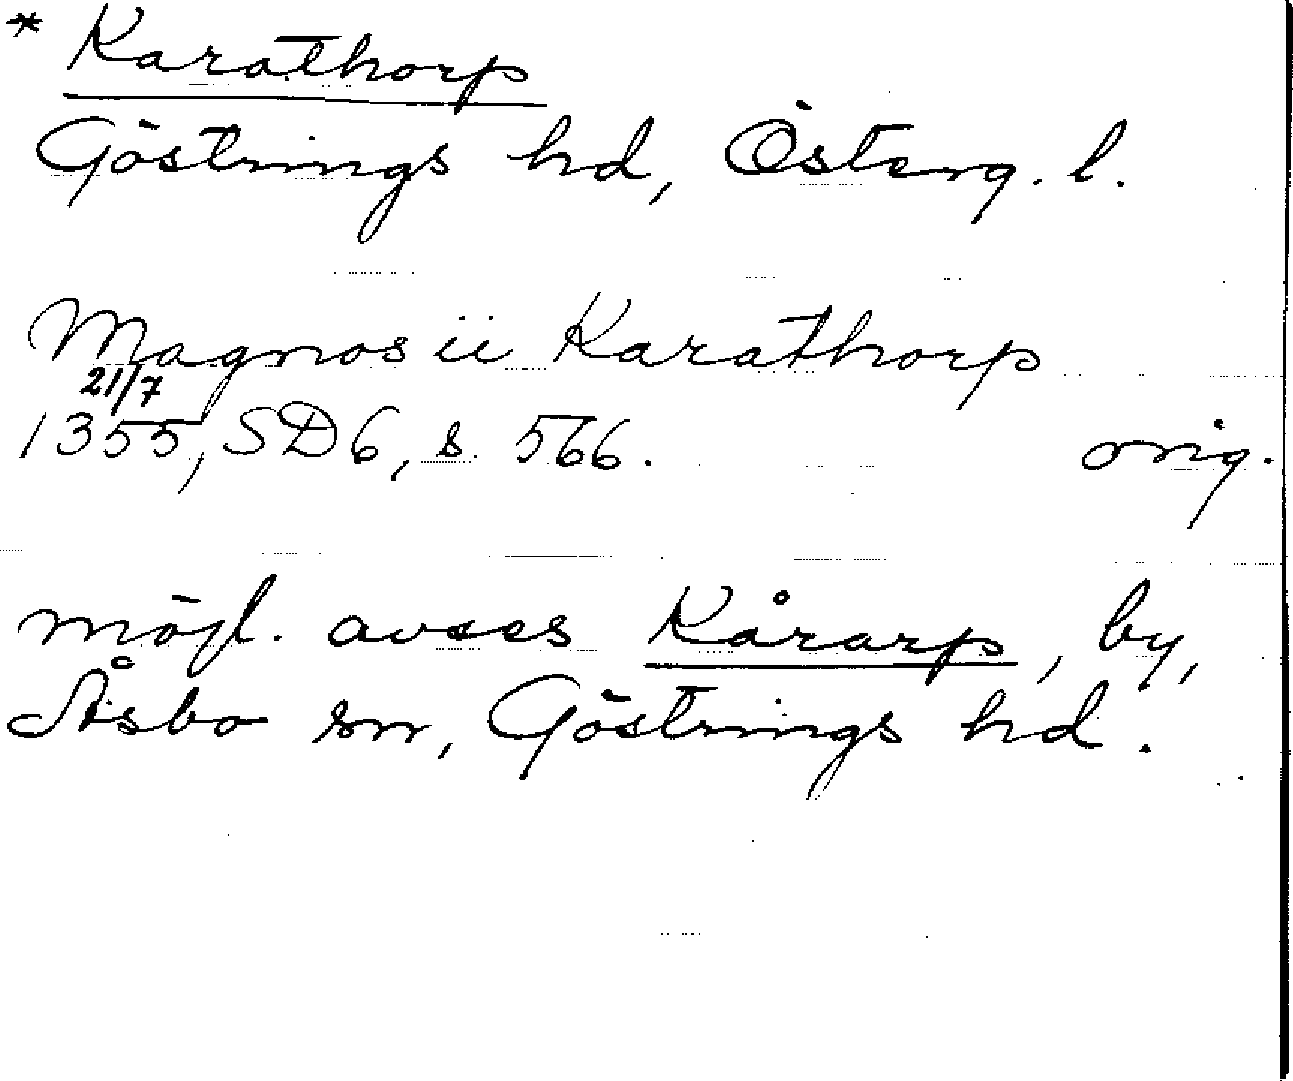 * Karathorp
Göstrings hd, Österg. l.
Magnos ii Karathorp
21/7
1355, SD6, s. 566. orig.
möjl. avses Kårarp, by,
Åsbo sn, Göstrings hd.